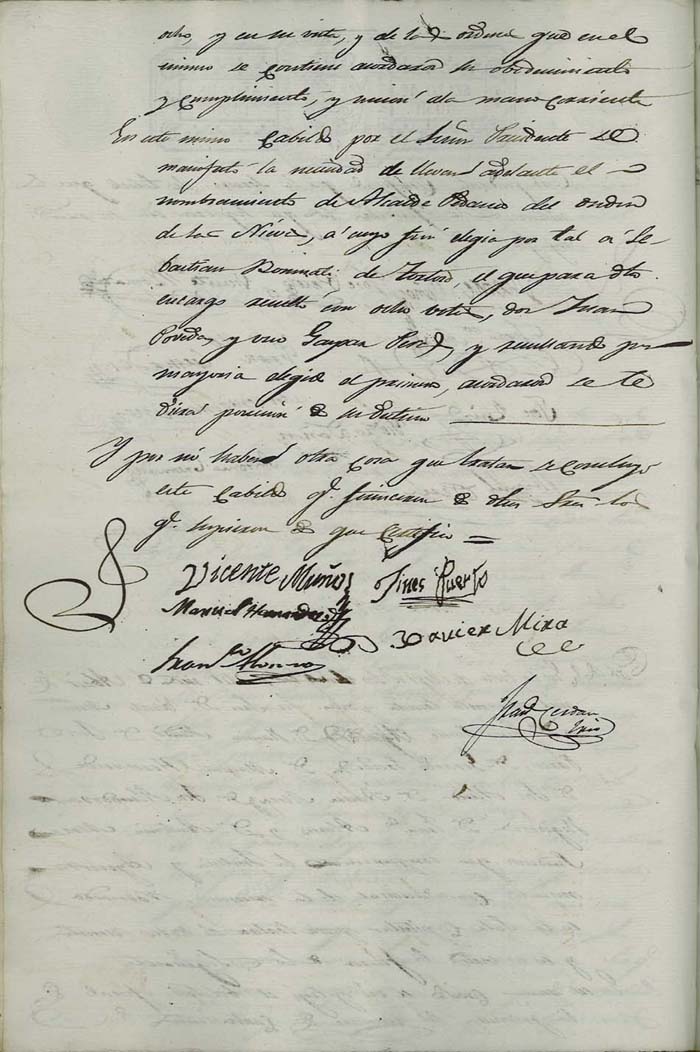 ocho, y en su vista, y de las ordenes que en el
mismo se contiene acordaron su obedecimiento
y cumplimiento, y union á la mano corriente
En este mismo Cabildo por el Señor Presidente se
manifestó la necesidad de llevar adelante el
nombramiento de Alcalde Pedaneo del
de las Nieves, á cuyo fin elegia por tal á Se
bastian de, el que para dho
encargo resultó con ocho votos, dos Juan
y uno Gaspar, y resultando por
mayoria elegido el primero, acordaron se le
diera posesion de su destino
Y por no haber otra cosa que tratar se concluyó
este Cabildo qe. firmaron de dhos Sres. los
qe. supieron de que Certifico =
Vicente Muños Jines Puerto
Manuel Hernandez
Xavier Mira
Franco. Alonso